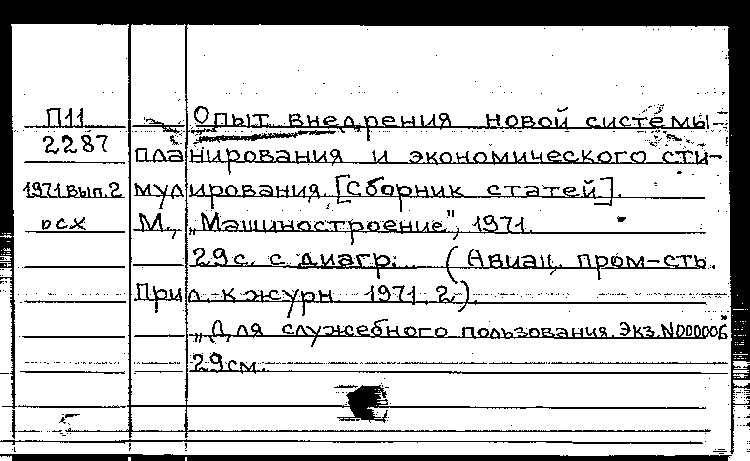 П11 Опыт внедрения новой системы
2287 планирования и экономического сти-
1971.вып.2 мулирования. [Сборник статей].
осх М., „Машиностроение", 1971.
29с. с диагр. (Авиац. пром-сть.
Прил. к журн. 1971. 2.).
„Для служебного пользования. Экз. N000006
29см.
5